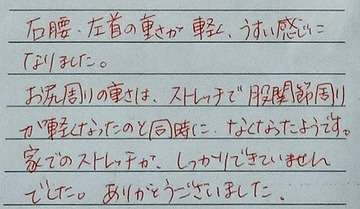 右腰・左首の重さが軽く、うすい感じに
なりました。
お尻周りの重さは、ストレッチで股関節周り
が軽くなったのと同時に、なくなったようです。
家でのストレッチが、しっかりできていません
でした。ありがとうございました。